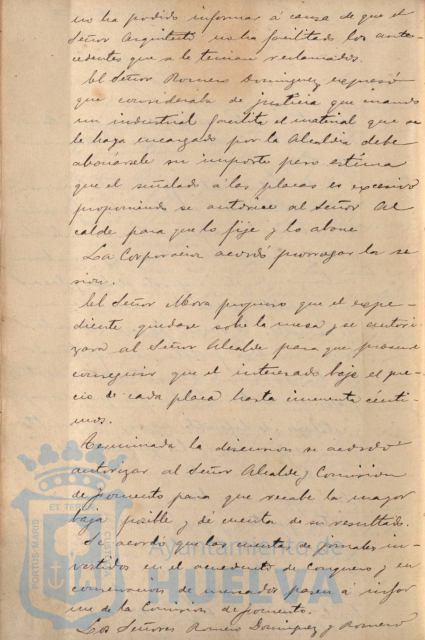 no ha podido informar á causa de que el
Señor Arquitecto no ha facilitado los ante-
cedentes que se le tenian reclamados.
El Señor Romero Dominguez expresó
que consideraba de justicia que cuando
un industrial facilita el material que se
le haya encargado por la Alcaldia debe
abonársele su importe pero estima
que el señalado á las placas es excesivo
proponiendo se autorice al Señor Al
calde para que lo fije y lo abone
La Corporacion acordó prorrogar la se
sion.
El Señor Mora propuso que el expe-
diente quedase sobre la mesa y se autori-
zara al Señor Alcalde para que procure
conseguir que el interesado baje el pre-
cio de cada placa hasta cincuenta centi-
mos.
Terminada la discusion se acordó
autorizar al Señor Alcalde y Comision
de fomento para que recabe la mayor
baja posible y dé cuenta de su resultado.
Se acordó que las cuentas de jornales in-
vertidos en el acueducto de Conquero y en
conservacion de mercados pasen á infor
me de la Comision de fomento.
Los Señores Romero Dominguez y Romero
Ayuntamiento de
HUELVA
PORTUS MARIS
ET TERRÆ
CUSTODIA